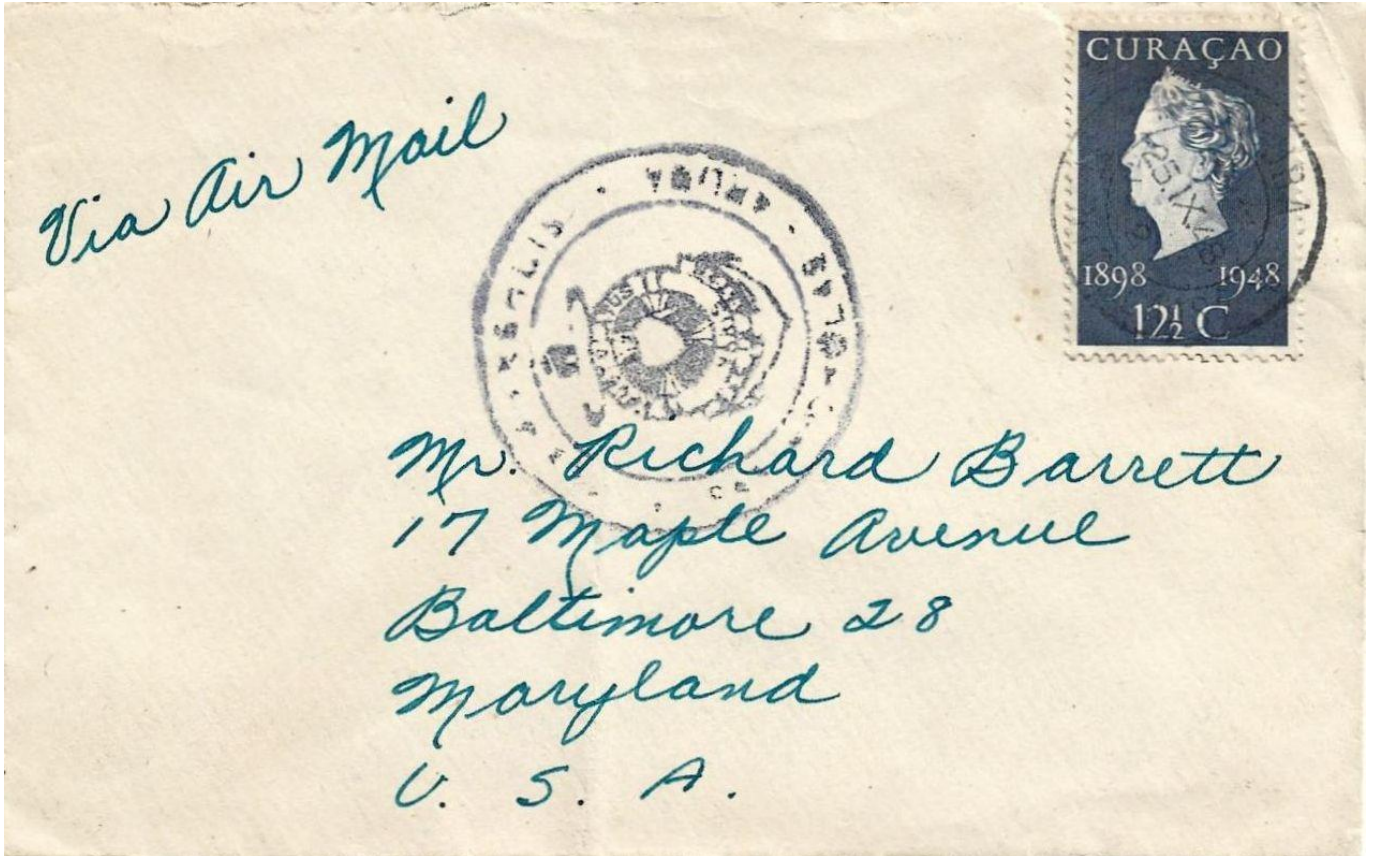 Via Air Mail
CURAÇAO
25.IX.48
1898 1948
12½ C
ARUBA
Mr. Richard Barrett
17 Maple Avenue
Baltimore 28
Maryland
U. S. A.